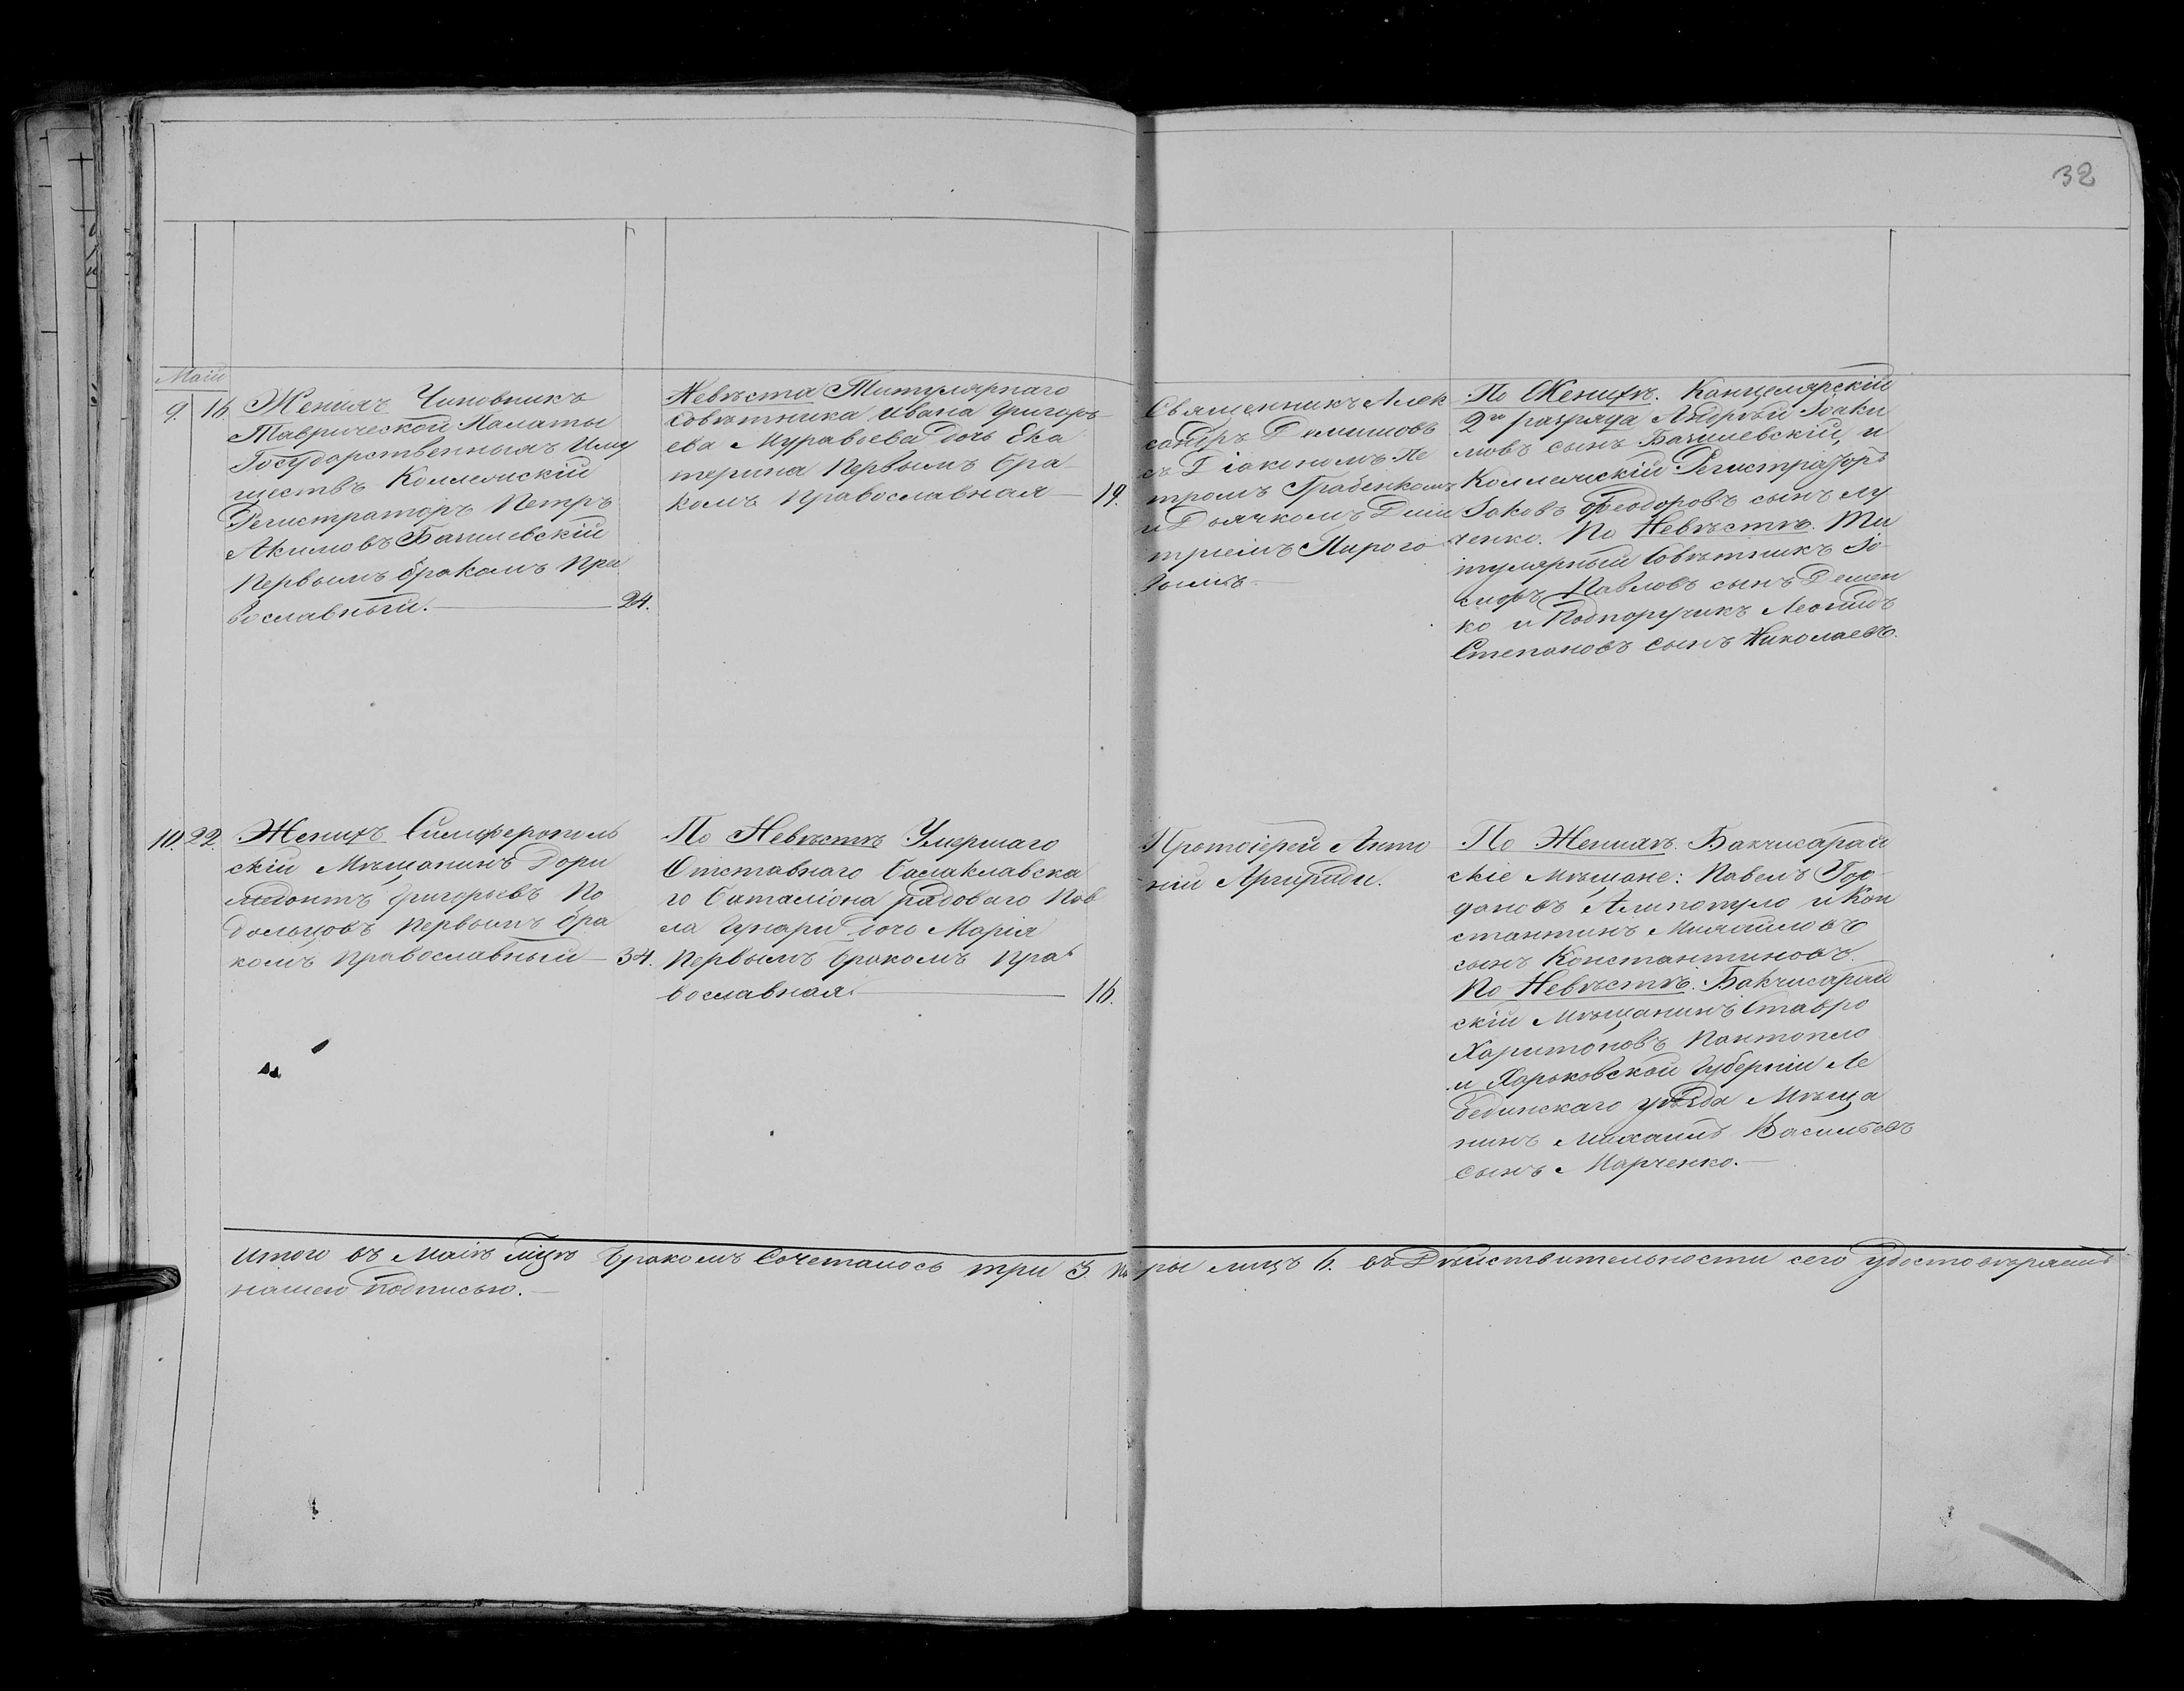 32
Маій
9. 16.
Женихъ Чиновникъ
Таврической Палаты
Государственныхъ Иму
ществъ Коллежскій
Регистраторъ Петръ
Акимовъ Бачилевскій
первымъ бракомъ Пра
вославный. 24.
Невѣста Титулярнаго
Совѣтника Ивана Григорь
ева Муравьева дочь Ека
терина первымъ бра
комъ православная 19.
Священникъ Алек
сандръ Демишовъ
съ Діакономъ Пе
тромъ Грабенкомъ
и Дьячкомъ Дми
тріемъ Пирого
вымъ
По Женихѣ. Канцелярскій
2го разряда Андрѣй Іоаки
мовъ сынъ Бачилевскій, и
Коллежскій Регистраторъ
Іаковъ Феодоровъ сынъ Лу
ченко. По Невѣстѣ. Ти
тулярный Совѣтникъ Іо
сифъ Павловъ сынъ Демен
ко и Подпоручикъ Леонидъ
Степановъ сынъ Николаевъ.
10. 22.
Женихъ Симферополь
скій Мѣщанинъ Дори
медонтъ Григорьевъ По
дольцовъ первымъ бра
комъ православный 34.
По Невѣстѣ Умершаго
Отставнаго Балаклавска
го Баталіона рядоваго Пав
ла дочь Марія
первымъ бракомъ пра
вославная. 16.
Протоіерей Анто
ній Аргириди.
По Женихѣ. Бакчисарай
скіе мѣщане: Павелъ
Алипопуло и Кон
стантинъ Михайловъ
сынъ Константиновъ.
По Невѣстѣ. Бакчисарай
скій Мѣщанинъ Ставро
Харитоновъ Пантопло
и Харьковской Губерніи Ле
бединскаго уѣзда Мѣща
нинъ Михаилъ Васильевъ
сынъ Марченко.
Итого въ Маіѣ мцѣ бракомъ сочеталось три 3 пары лицъ 6. въ Дѣйствительности сего удостовѣряемъ
нашею подписью.